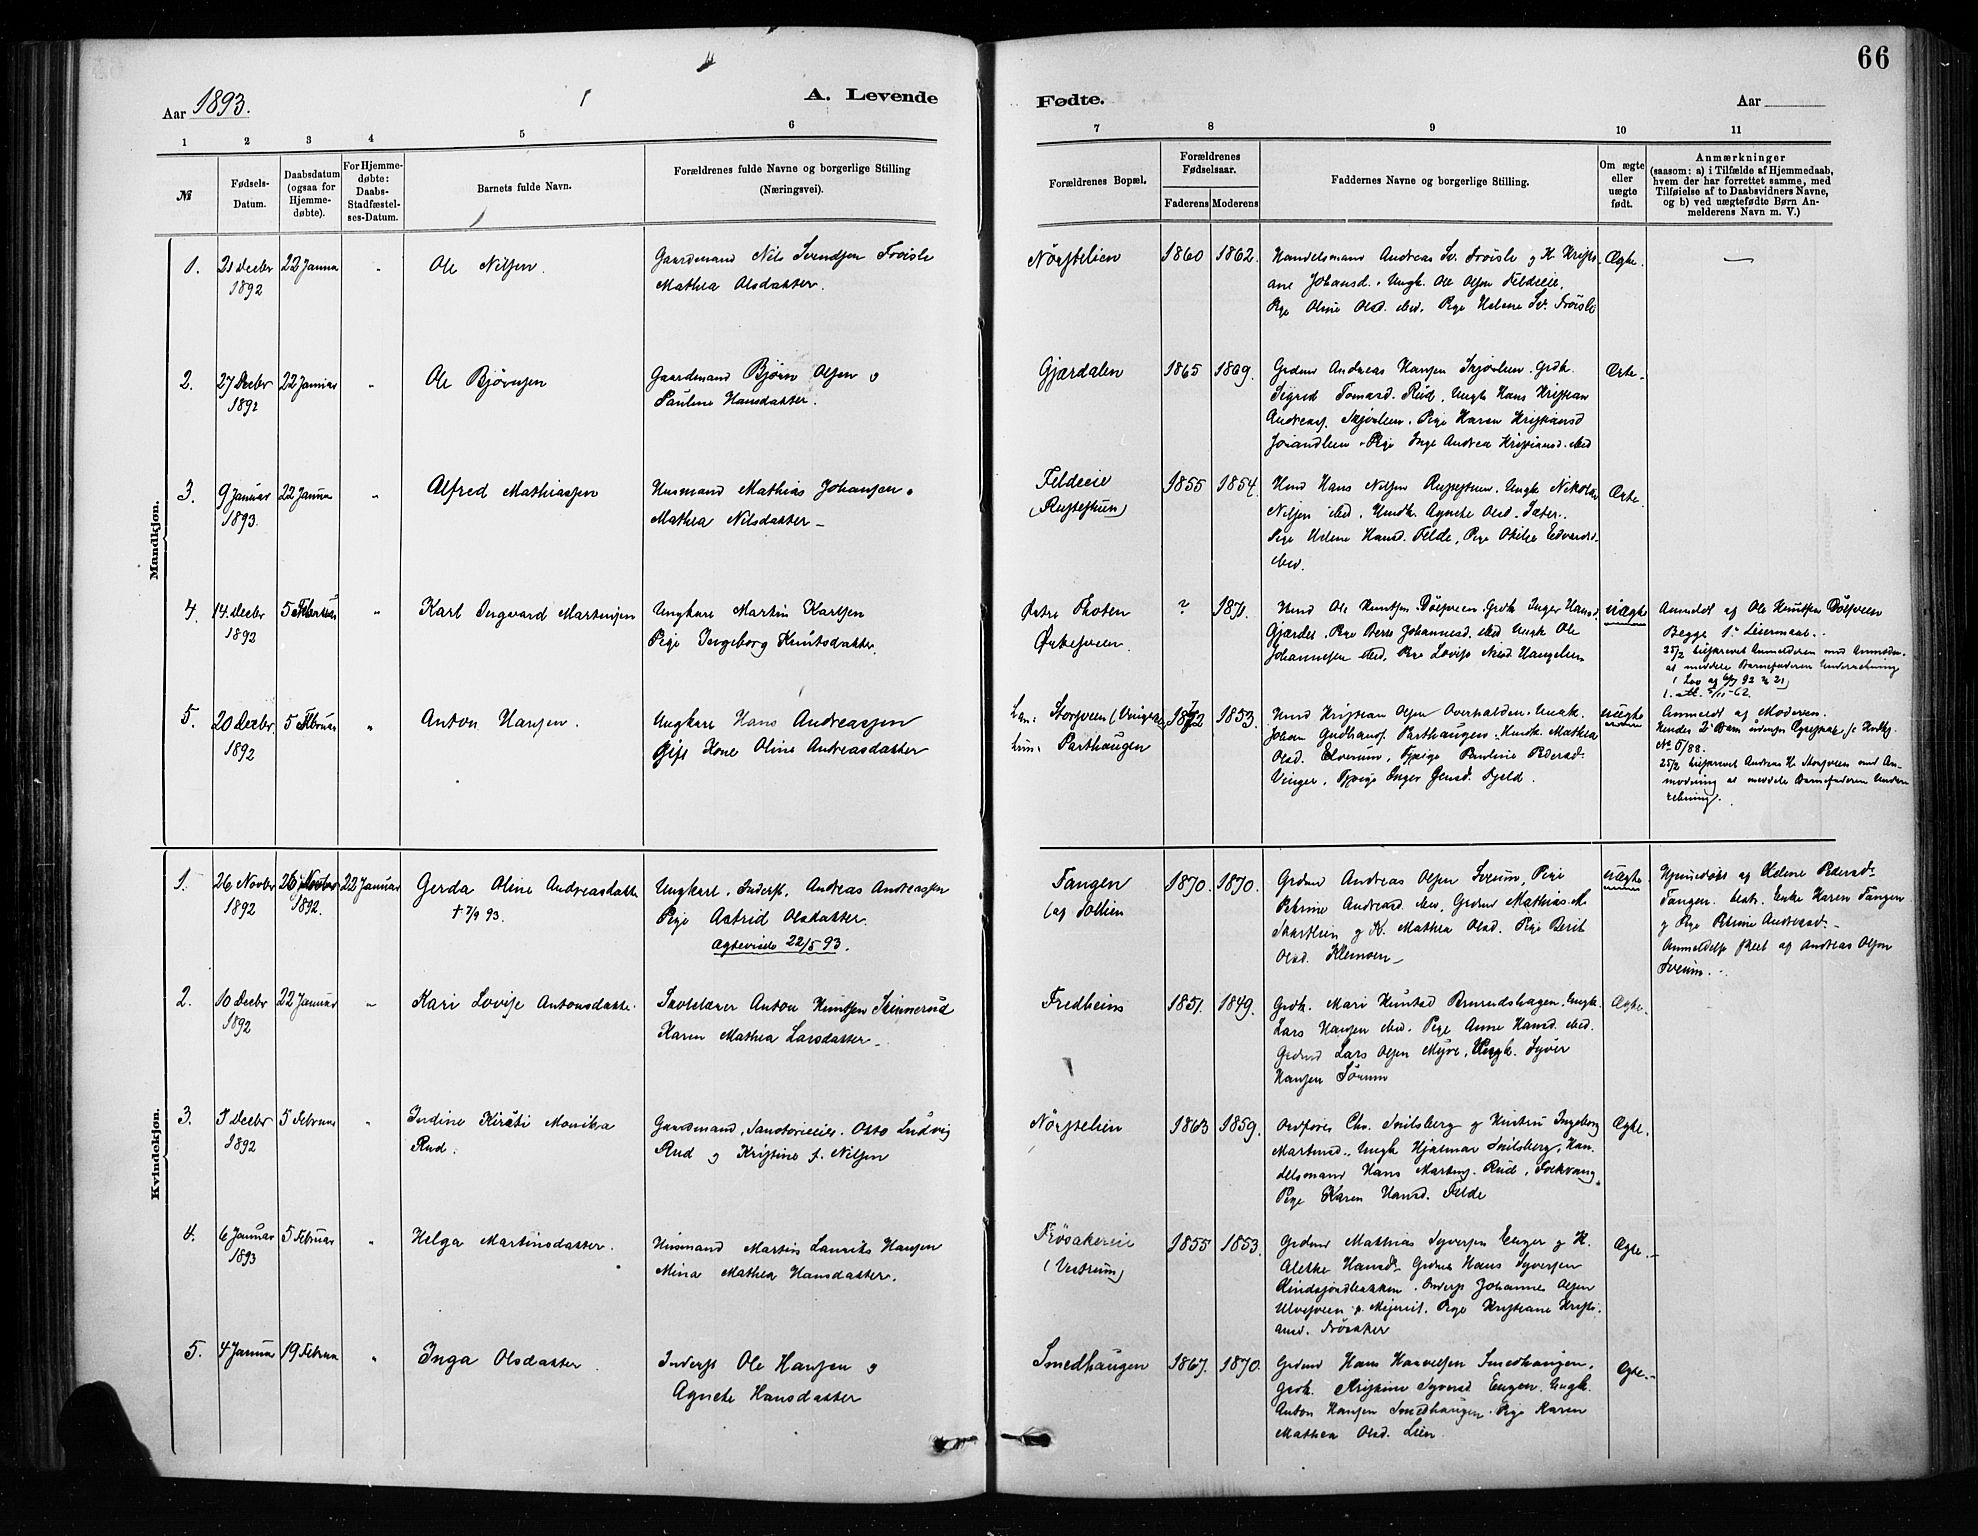 66
Aar 1893.
A. Levende
Fødte.
Aar
1 2 3 4 5 6 7 8 9 10 11
№
Fødsels-
Datum.
Daabsdatum
(ogsaa for
Hjemme-
døbte).
For Hjemme-
døbte:
Daabs-
Stadfæstel-
ses-Datum.
Barnets fulde Navn.
Forældrenes fulde Navne og borgerlige Stilling
(Næringsvei).
Forældrenes Bopæl.
Forældrenes
Fødselsaar.
Faderens
Moderens
Faddernes Navne og borgerlige Stilling.
Om ægte
eller
uægte
født.
Anmærkninger
(saasom: a) i Tilfælde af Hjemmedaab,
hvem der har forrettet samme, med
Tilføielse af to Daabsvidners Navne,
og b) ved uægtefødte Børn An-
melderens Navn m. V.)
Mandkjøn.
1.
21 Decbr
1892
22 Janua
"
Ole Nilsen.
Gaardmand Nils Svendsen Frøisli
Mathea Olsdatter.
Nørstelien
1860
1862.
Handelsmand Andreas Sv. Frøisli g K. Kristi-
ane Johansd. Ungk. Ole Olsen Feldeie,
Pige Oline Olsd. ibid. Pige Helene Sv. Frøisli
Ægte.
—
2.
27 Decbr
1892
22 Januar
"
Ole Bjørnsen
Gaardmand Bjørn Olsen o
Pauline Hansdatter.
Gjærdalen
1865
1869.
Grdmd Andreas Hansen Skjønlien. Grdk.
Sigrid Tomasd. Rud, Ungk Hans Kristian
Andreass. Skjønlien. Pige Karen Kristiansd
Pige Inge Andrea Kristiansd. ibid
Ægte.
3.
9 Januar
1893.
22 Janua
"
Alfred Mathiassen
Husmand Mathias Johansen o
Mathea Nilsdatter –
Feldeeie
1855
1854.
Hmd Hans Nilsen Ungk Nikolai
Nilsen ibid, Hmdk. Agnethe Olsd. Sæter.
Pige Helene Hansd. Felde, Pige Otilie Edvardsd.
ibid.
Ægte.
4.
14. Decbr
1892
5 Februar
"
Karl Ingvard Martinsen
Ungkarl Martin Karlsen
Pige Ingeborg Knutsdatter.
Østre Thoten
?
1871.
Hmd Ole Knutsen Grdk Inger Hansd.
Gjærdet. Pige Berte Johannesd. ibid Ungk Ole
Johannesen ibid, Pige Lovise Haugelien
uægte
Anmeldt af Ole Knutsen
Begge 1ste Leiermaal.
25/2 tilskrevet Anmelderen med Anmodn.
at meddele Barnefaderen Underretning
5.
20 Decbr
1892
5 Februar
"
Anton Hansen.
Ungkarl Hans Andreassen
Gift Kone Oline Andreasdatter
han: Storsveen
hun: Parthaugen
1853.
Hmd Kristian Olsen Overhalden. Ungk.
Johan Gudbrands. Parthaugen. Hmdk. Mathea
Olsd. Elverum, Tjpige Pauline Pedersd.
Vinger, Tjpige Inger Jensd. Fjeld.
uægte
Anmeldt af Moderen.
Hendes 2det Barn udenfor Ægteskab
No 5/88.
25/2 tilskrevet Andreas H. Storsveen med An-
modning at meddele Barnefaderen Under-
retning.
Kvindekjøn.
1.
26 Novbr
1892
26 Novbr
1892.
22 Januar
Gerda Oline Andreasdatte
† 7/9 93.
Ungkarl, Inderst, Andreas Andreassen
Pige Astrid Olsdatter.
Ægteviede 22/5 93.
Tangen
1870.
1870.
Grdmd Andreas Olsen Sveum, Pige
Petrine Andreasd. ibid, Grdmd Mathias M.
Skartlien g K. Mathea Olsd. Pige Berit
Olsd. Klemoen –
uægte
Hjemmedøbt af Helene Pedersd.
Tangen. Enke Karen Tangen
g Pige Petrine Andreasd. –
Anmeldelse skeet af Andreas Olsen
Sveum.
2.
10 Decbr
1892
22 Januar
"
Kari Lovise Antonsdatte.
Skolelærer Anton Knutsen Skinnerud
Karen Mathea Larsdatter –
Fredheim
1851.
1849.
Grdk. Mari Knutsd Brurudshagen. Ungk.
Lars Hansen ibid. Pige Anne Hansd. ibid.
Grdmd Lars Olsen Myre, Ungk. Syver
Hansen Sørum
Ægte.
3.
Decbr
1892
5 Februar
"
Indine Kirsti Monika
Rud.
Gaardmand, Sanatorieeier Otto Ludvig
Rud g Kristine f. Nilsen
Nørstelien
1863
1859.
Ordfører Chr. Smilsberg g Hustru Ingeborg
Martinsd., Ungk Hjalmar Smilsberg, Han-
delsmand Hans Martins. Rud, Solvang,
Pige Karen Hansd. Felde
Ægte.
4.
6 Januar
1893
5 Februar
"
Helga Martinsdatter.
Husmand Martin Laurits Hansen
Mina Mathea Hansdatter.
Frøsakereie
(Vestrum)
1855
1853.
Grdmd Mathias Syversen Enger g K.
Alethe Hansd. Grdmd Hans Syversen
Inderst Johannes Olsen
Ulvesveen p. Meieriet. Pige Kristiane Kristi-
ansd. Frøsaker
Ægte.–
5.
4 Januar
19 Februa
"
Inga Olsdatter.
Inderst Ole Hansen g
Agnethe Hansdatter
Smedhaugen
1867.
1870.
Grdmd Hans Haavelsen Smedhaugen,
Grdk. Kristine Syversd Engen, Ungk.
Anton Hansen Smedhaugen. Pige Karen
Mathea Olsd. Lien.
Ægte.–